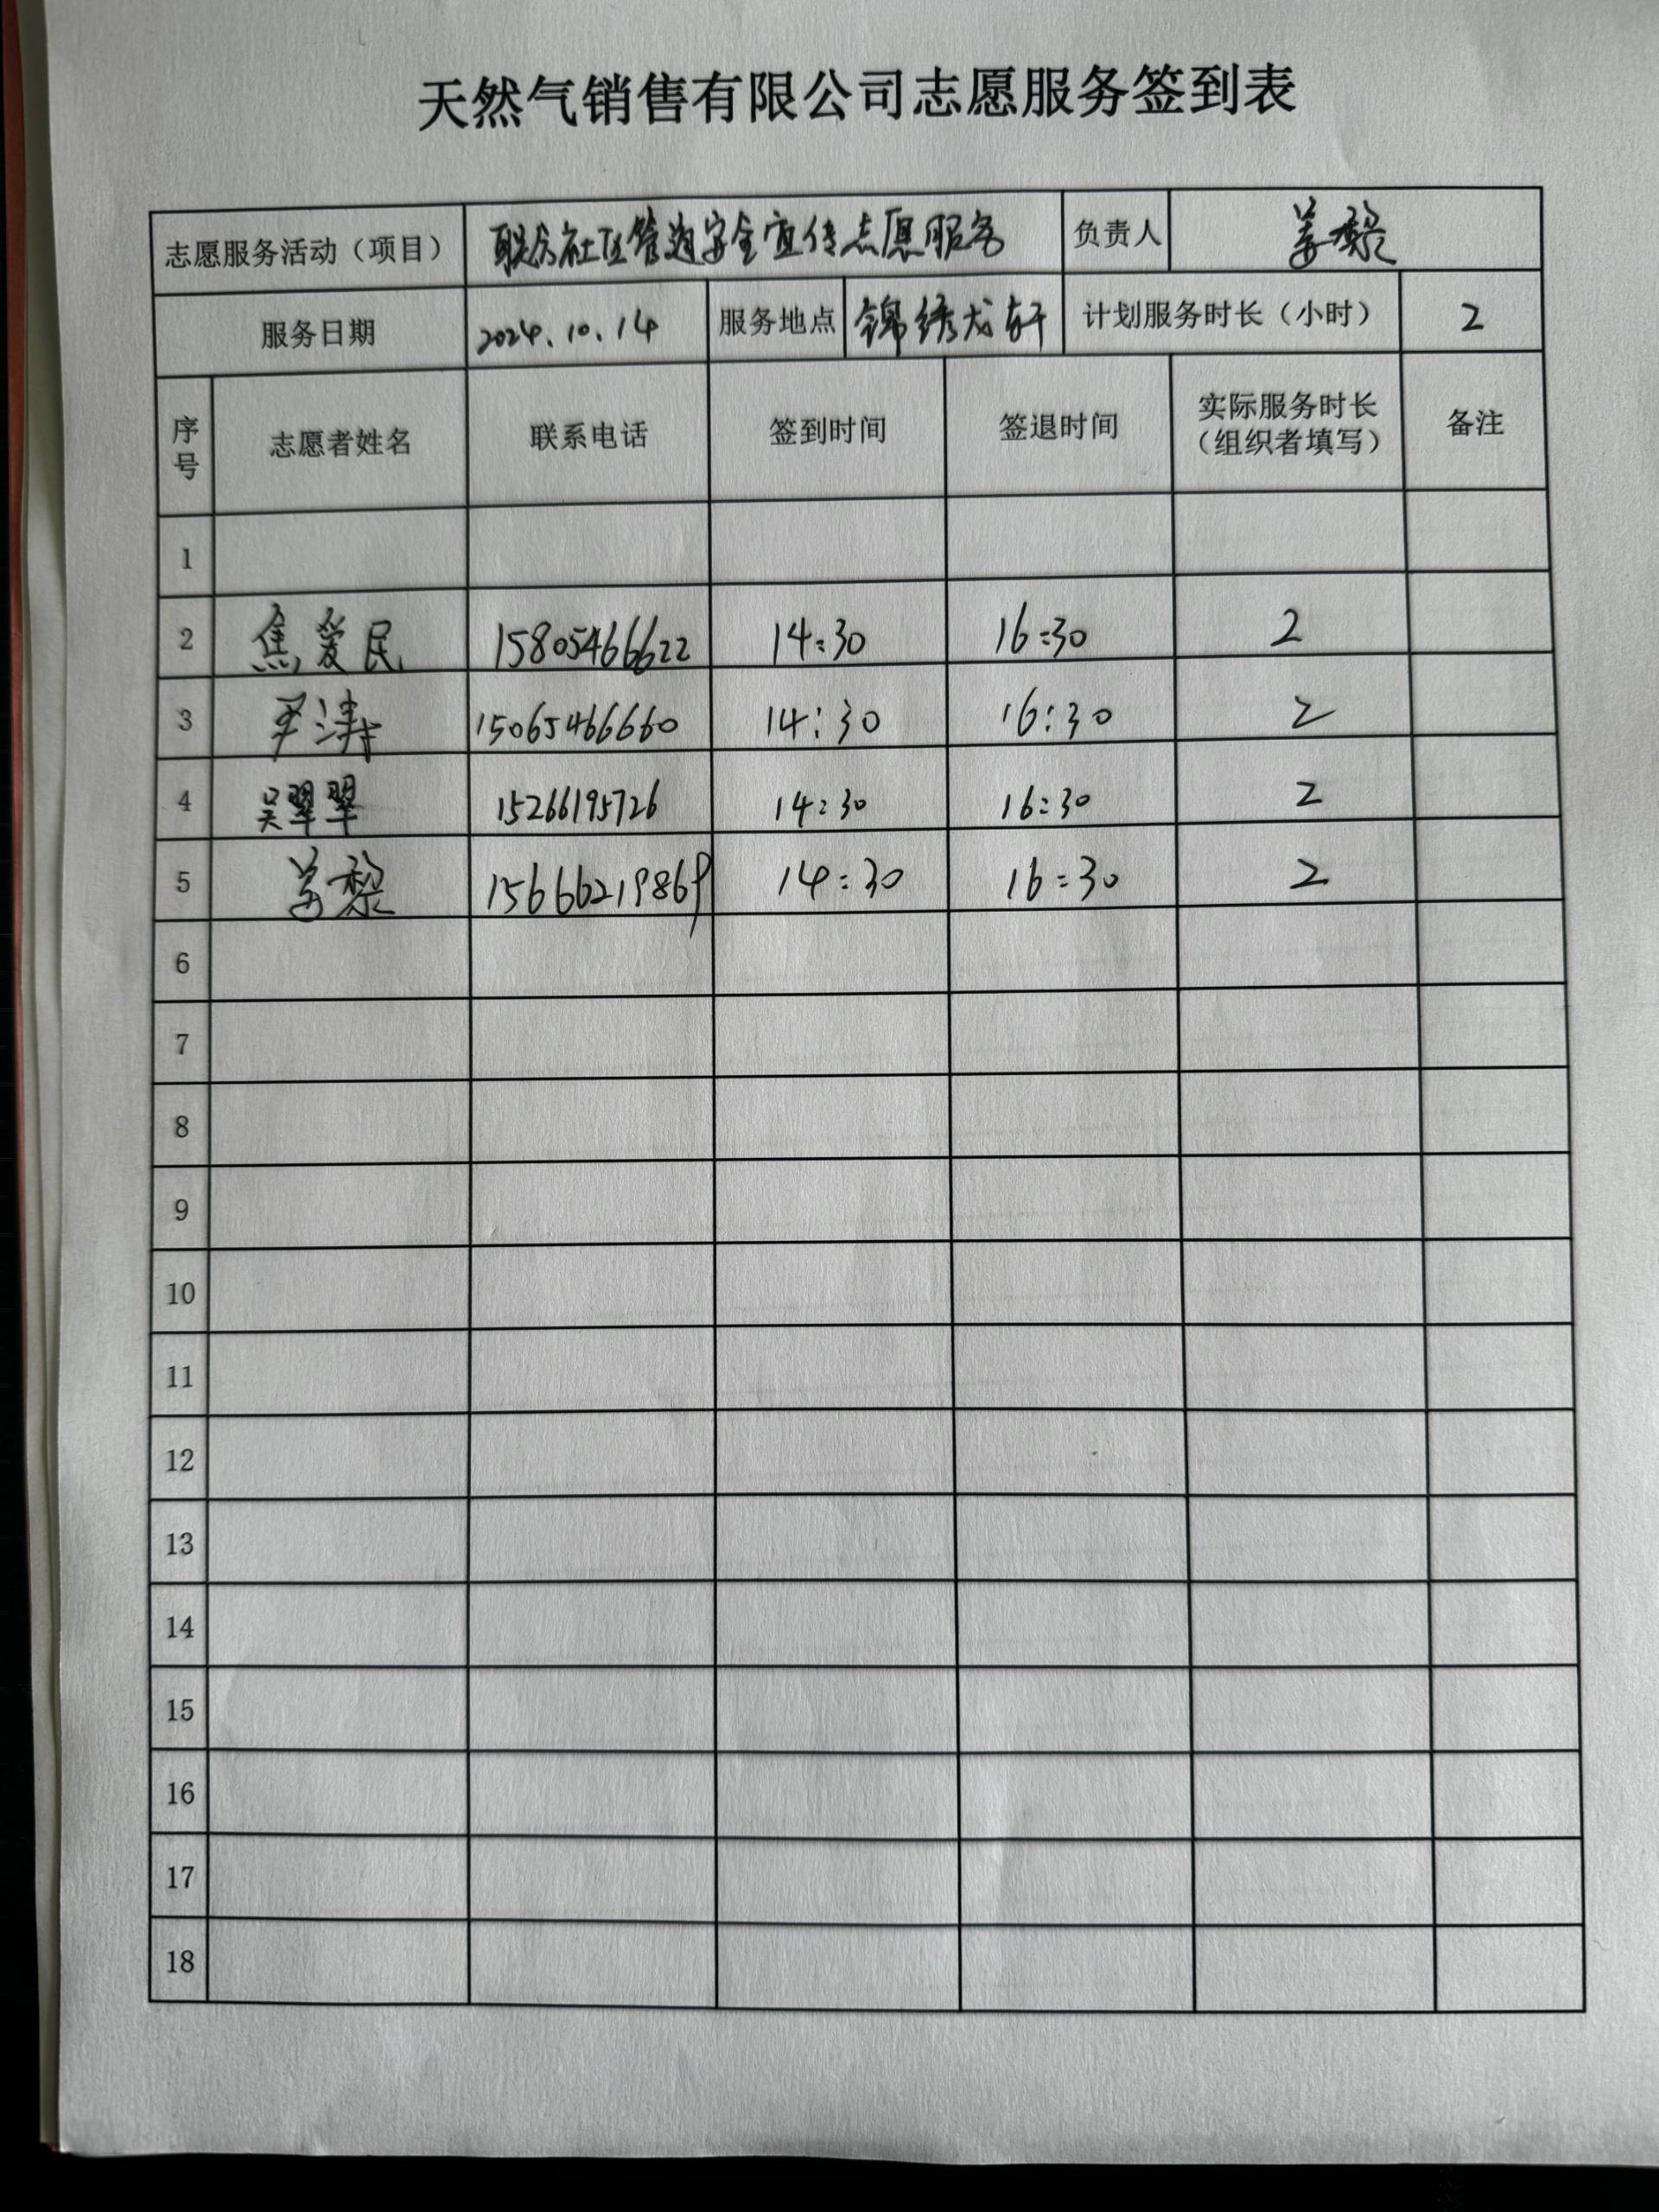 天然气销售有限公司志愿服务签到表
志愿服务活动（项目） 社区管道安全宣传志愿服务 负责人 姜黎
服务日期 2024.10.14 服务地点 锦绣龙轩 计划服务时长（小时） 2
序号 志愿者姓名 联系电话 签到时间 签退时间 实际服务时长（组织者填写） 备注
1
2 焦爱民 15805466622 14:30 16:30 2
3 尹涛 15065466660 14:30 16:30 2
4 吴翠翠 15266195726 14:30 16:30 2
5 姜黎 15666219869 14:30 16:30 2
6
7
8
9
10
11
12
13
14
15
16
17
18